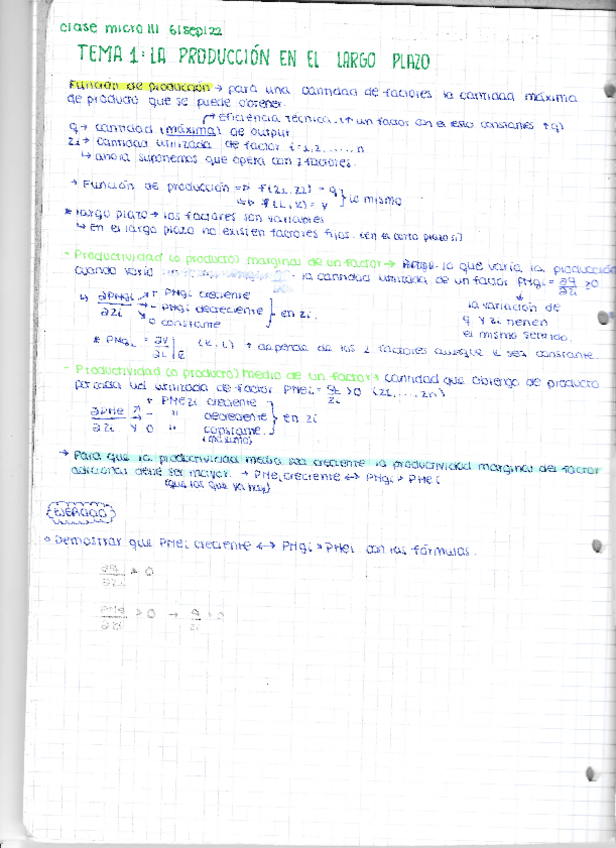 clase micro III 6|sept|22
TEMA 1: LA PRODUCCIÓN EN EL LARGO PLAZO
Función de producción → para una cantidad de factores la cantidad máxima
de producto que se puede obtener.
→ Eficiencia técnica. (↑ un factor con el resto constantes ↑q)
q → cantidad (máxima) de output.
zi → cantidad utilizada de factor i=1,2,.....n
↳ ahora suponemos que opera con 2 factores.
→ Función de producción => f(z1, z2) = q } lo mismo
=> f(L, K) = Y
* largo plazo → los factores son variables
↳ En el largo plazo no existen factores fijos. (en el corto plazo sí)
- Productividad (o producto) marginal de un factor → lo que varía la producción
cuando varía la cantidad utilizada de un factor PMgi = ∂q/∂zi ≥0
↳ ∂PMgi/∂zi + PMgi creciente
- PMgi decreciente } en zi.
0 constante
la variación de
q y zi tienen
el mismo sentido.
* PMgL = ∂Y/∂L (K, L) → depende de los 2 factores aunque K sea constante.
- Productividad (o producto) media de un factor → cantidad que obtengo de producto
por cada ud utilizada de factor PMei = q/zi >0 (z1,....zn)
∂PMe/∂zi + PMezi creciente
- " decreciente } en zi
0 " constante.
(máximo)
→ Para que la productividad media sea creciente la productividad marginal del factor
adicional debe ser mayor. → PMei creciente ↔ PMgi > PMei
(que los que ya hay)
EJERCICIO
• Demostrar que PMei creciente ↔ PMgi > PMei con las fórmulas.
∂q/∂zi > 0
> 0 → q/zi